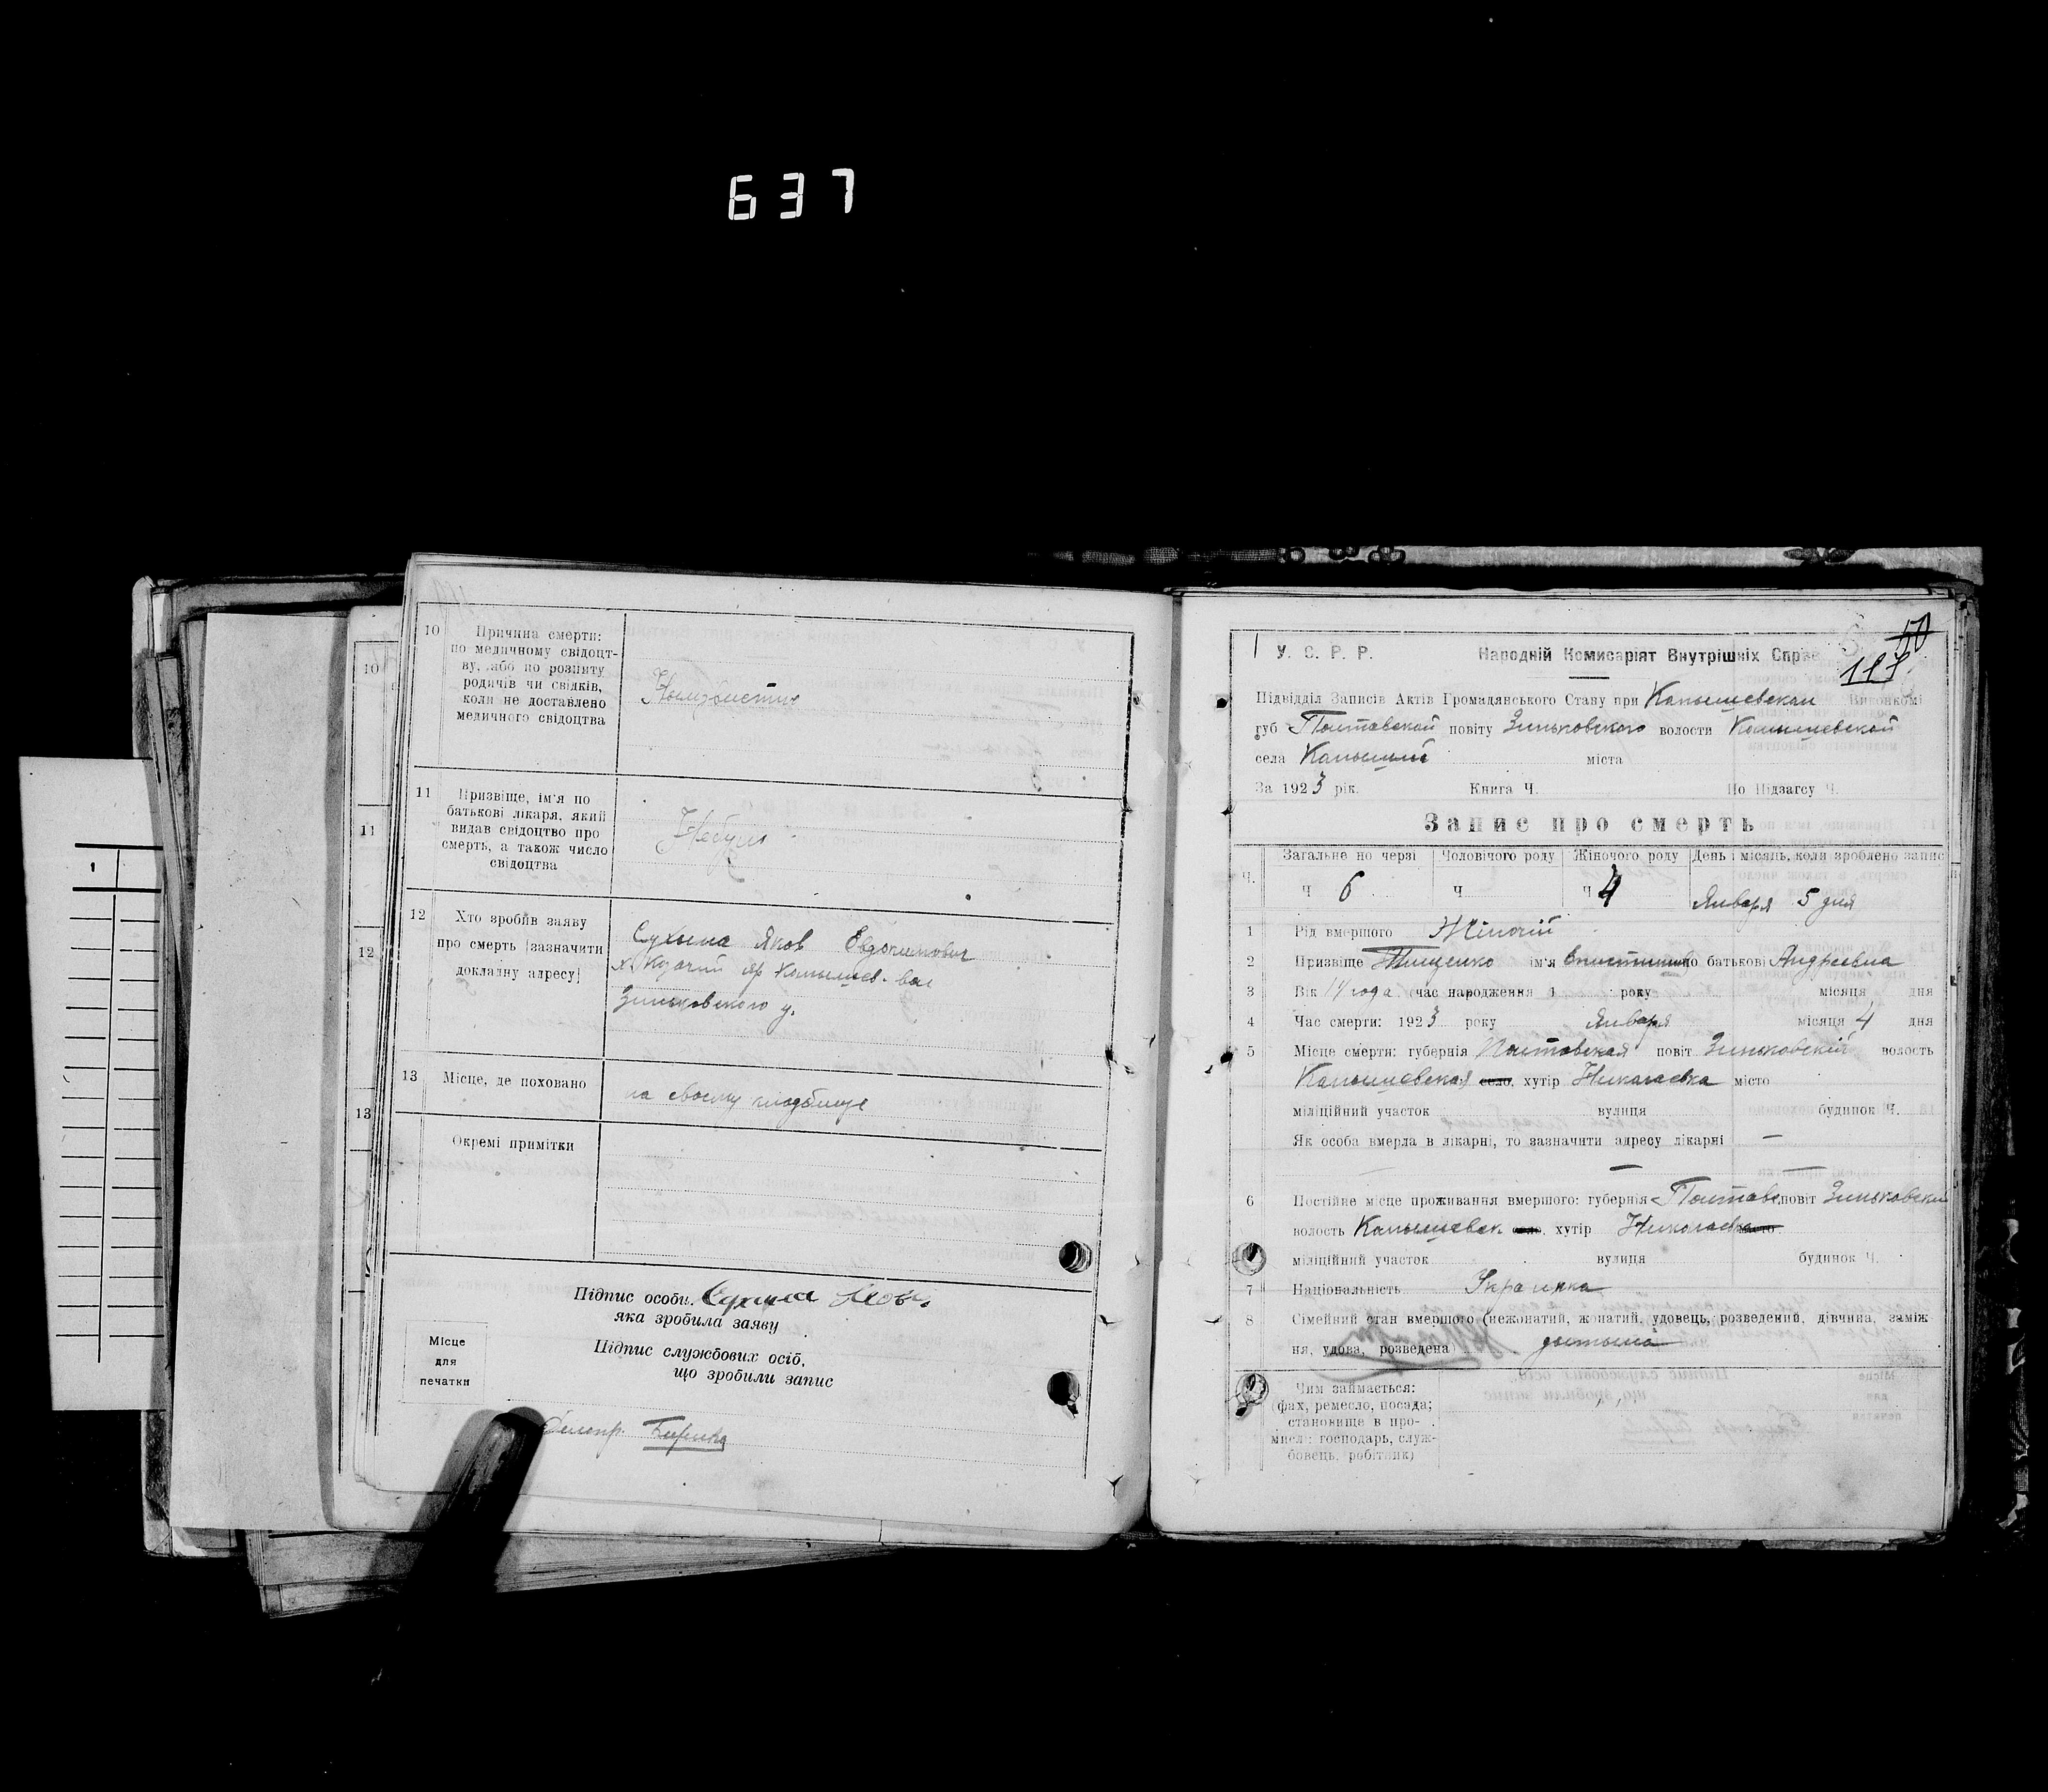 637
10
Причина смерти:
по медичному свідоцт-
ву, або по розпиту
родичів чи свідків,
коли не доставлено
медичного свідоцтва
11
Призвіще, ім'я по
батькові лікаря, який
видав свідоцтво про
смерть, а також число
свідоцтва
12
Хто зробив заяву
про смерть (зазначити
докладну адресу)
Сухина Яков Евдокимович
х. Козачий яр Камышев. вол
Зиньковского у.
13
Місце, де поховано
на своему кладбище
Окремі примітки
Підпис особи, Сухина Яков
яка зробила заяву
Підпис службових осіб,
що зробили запис
Місце
для
печатки
10
11
12
13
1
50
111
У. С. Р. Р. Народній Комисаріят Внутрішніх Справ
Підвідділ Записів Актів Громадянського Стану при Камышевском Виконкомі
губ Полтавской повіту Зиньковского волости Камышевской
села Камыши міста
За 1923 рік. Книга Ч. По Підзагсу Ч.
Запис про смерть
Ч. Загальне по черзі Чоловічого роду Жіночого роду День і місяць, коли зроблено запис
Ч 6 Ч Ч 4 Января 5 дня
1 Рід вмершого Жіночій
2 Призвіще Тищенко ім'я по батькові Андреевна
3 Вік 14 года час народження 1 року місяця дня
4 Час смерти: 1923 року Января місяця 4 дня
5 Місце смерти: губернія Полтавская повіт Зиньковскій волость
Камышевская село, хутір Николаевка місто
міліційний участок вулиця будинок Ч.
Як особа вмерла в лікарні, то зазначити адресу лікарні —
6 Постійне місце проживання вмершого: губернія Полтавс. повіт Зиньковский
волость Камышевск село, хутір Николаевка місто
міліційний участок вулиця будинок Ч.
7 Національність Украинка
8 Сімейний стан вмершого (нежонатий, жонатий, удовець, розведений, дівчина, заміж
ня, удова, розведена) дытына
Чим займається:
(фах, ремесло, посада;
становище в про-
мислі: господарь, служ-
бовець, робітник)